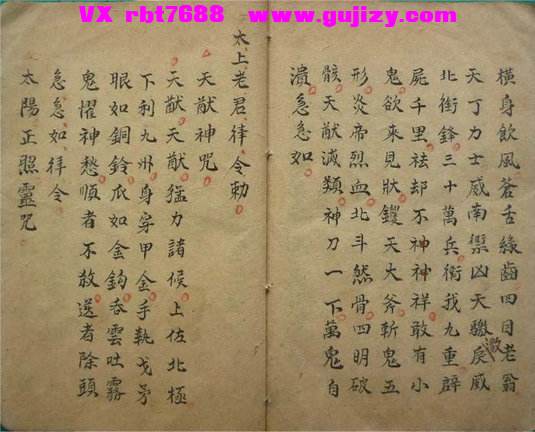 VX rbt7688 www.gujizy.com
橫身飲風蒼舌綠齒四目老翁
天丁力士威南禦凶天騶戾威
北銜鋒三十萬兵衛我九重辟
屍千里祛却不神神祥敢有小
鬼欲來見狀钁天大斧斬鬼五
形炎帝烈血北斗然骨四明破
骸天猷滅類神刀一下萬鬼自
潰急急如
太上老君律令勅
天猷神咒
天猷天猷猛力諸候上佐北極
下利九州身穿甲金手執戈矛
眼如銅鈴爪如金鈎吞雲吐霧
鬼懼神愁順者不放送者除頭
急急如律令
太陽正照靈咒